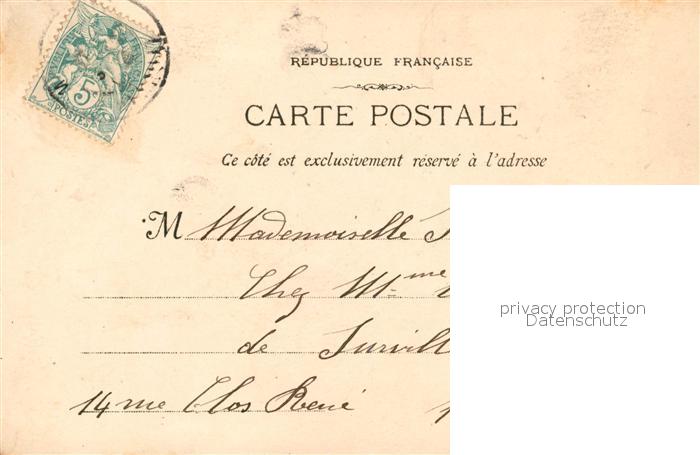 RÉPUBLIQUE FRANÇAISE
CARTE POSTALE
Ce côté est exclusivement réservé à l'adresse
M Mademoiselle
Chez Mme
de Survill
14 rue Clos René
privacy protection
Datenschutz
5
POSTES